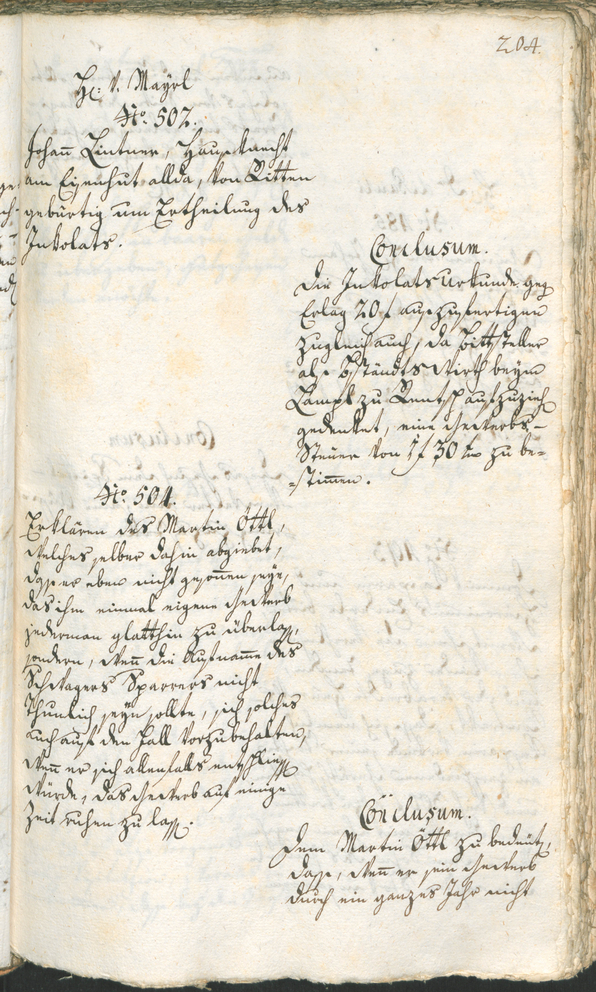 204.
H: v. Mayrl
No. 502.
Johañ Lintner, Hausknecht
am Eisenhut allda, von Ritten
gebürtig um Ertheilung des
Inkolats.
Conclusum.
Die Inkolatsurkunde geg
Erlag 20 f auszufertigen
zugleich auch, da Bittsteller
als Bständtswirth beym
Lampl zu Rentsch aufzuzieh
gedenket, eine Gewerbs-
Steuer von 1 f 30 kr zu be-
-stimmen.
No. 504.
Erklären des Martin Öttl,
welches selber dahin abgiebet,
dass er eben nicht gesonnen seye,
das ihm einmal eigene Gewerb
jederman glatthin zu überlass,
sondern, wenn die Aufname des
Schwagers Sparrers nicht
thunlich seyn sollte, sich solches
auch auf den Fall vorzubehalten,
wenn er sich allenfalls entschliess
würde, das Gewerb auf einige
Zeit ruhen zu lass.
Conclusum.
Dem Martin Öttl zu bedeut,
dass, wenn er sein Gewerb
durch ein ganzes Jahr nicht